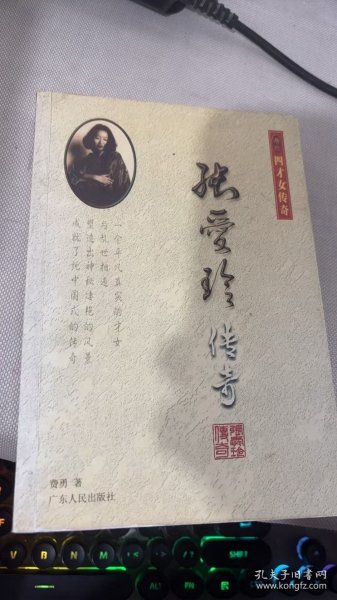 四才女传奇
张爱玲传奇
一个平凡真实的才女
与乱世相遇
塑造出神秘凄艳的风景
成就了说中国式的传奇
张爱玲
传奇
费勇 著
广东人民出版社
V
B
N
M
SHIFT
ALT
FN
CTRL
孔夫子旧书网
www.kongfz.com